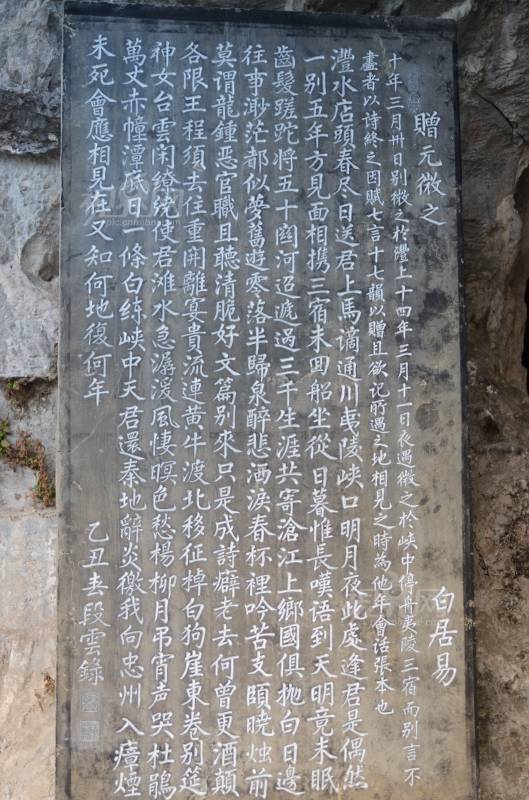 贈元微之 白居易
十年三月卅日别微之於灃上十四年三月十一日夜遇微之於峡中停舟夷陵三宿而别言不
盡者以詩終之因賦七言十七韻以贈且欲记所遇之地相見之時為他年會话張本也
灃水店頭春尽日送君上馬謫通川夷陵峽口明月夜此處逢君是偶然
一别五年方見面相携三宿未回船坐從日暮惟長嘆语到天明竟未眠
齒髮蹉跎將五十関河迢遞過三千生涯共寄滄江上鄉國俱拋白日邊
往事渺茫都似夢舊遊零落半歸泉醉悲洒淚春杯裡吟苦支頤曉烛前
莫谓龍鍾惡官職且聽清脆好文篇别來只是成詩癖老去何曾更酒顛
各限王程須去住重開離宴貴流連黄牛渡北移征棹白狗崖東卷别筵
神女台雲闲繚繞使君滩水急潺湲風悽暝色愁楊柳月吊宵声哭杜鵑
萬丈赤幢潭底日一條白练峽中天君還秦地辭炎徼我向忠州入瘴煙
未死會應相見在又知何地復何年
乙丑春段雲錄